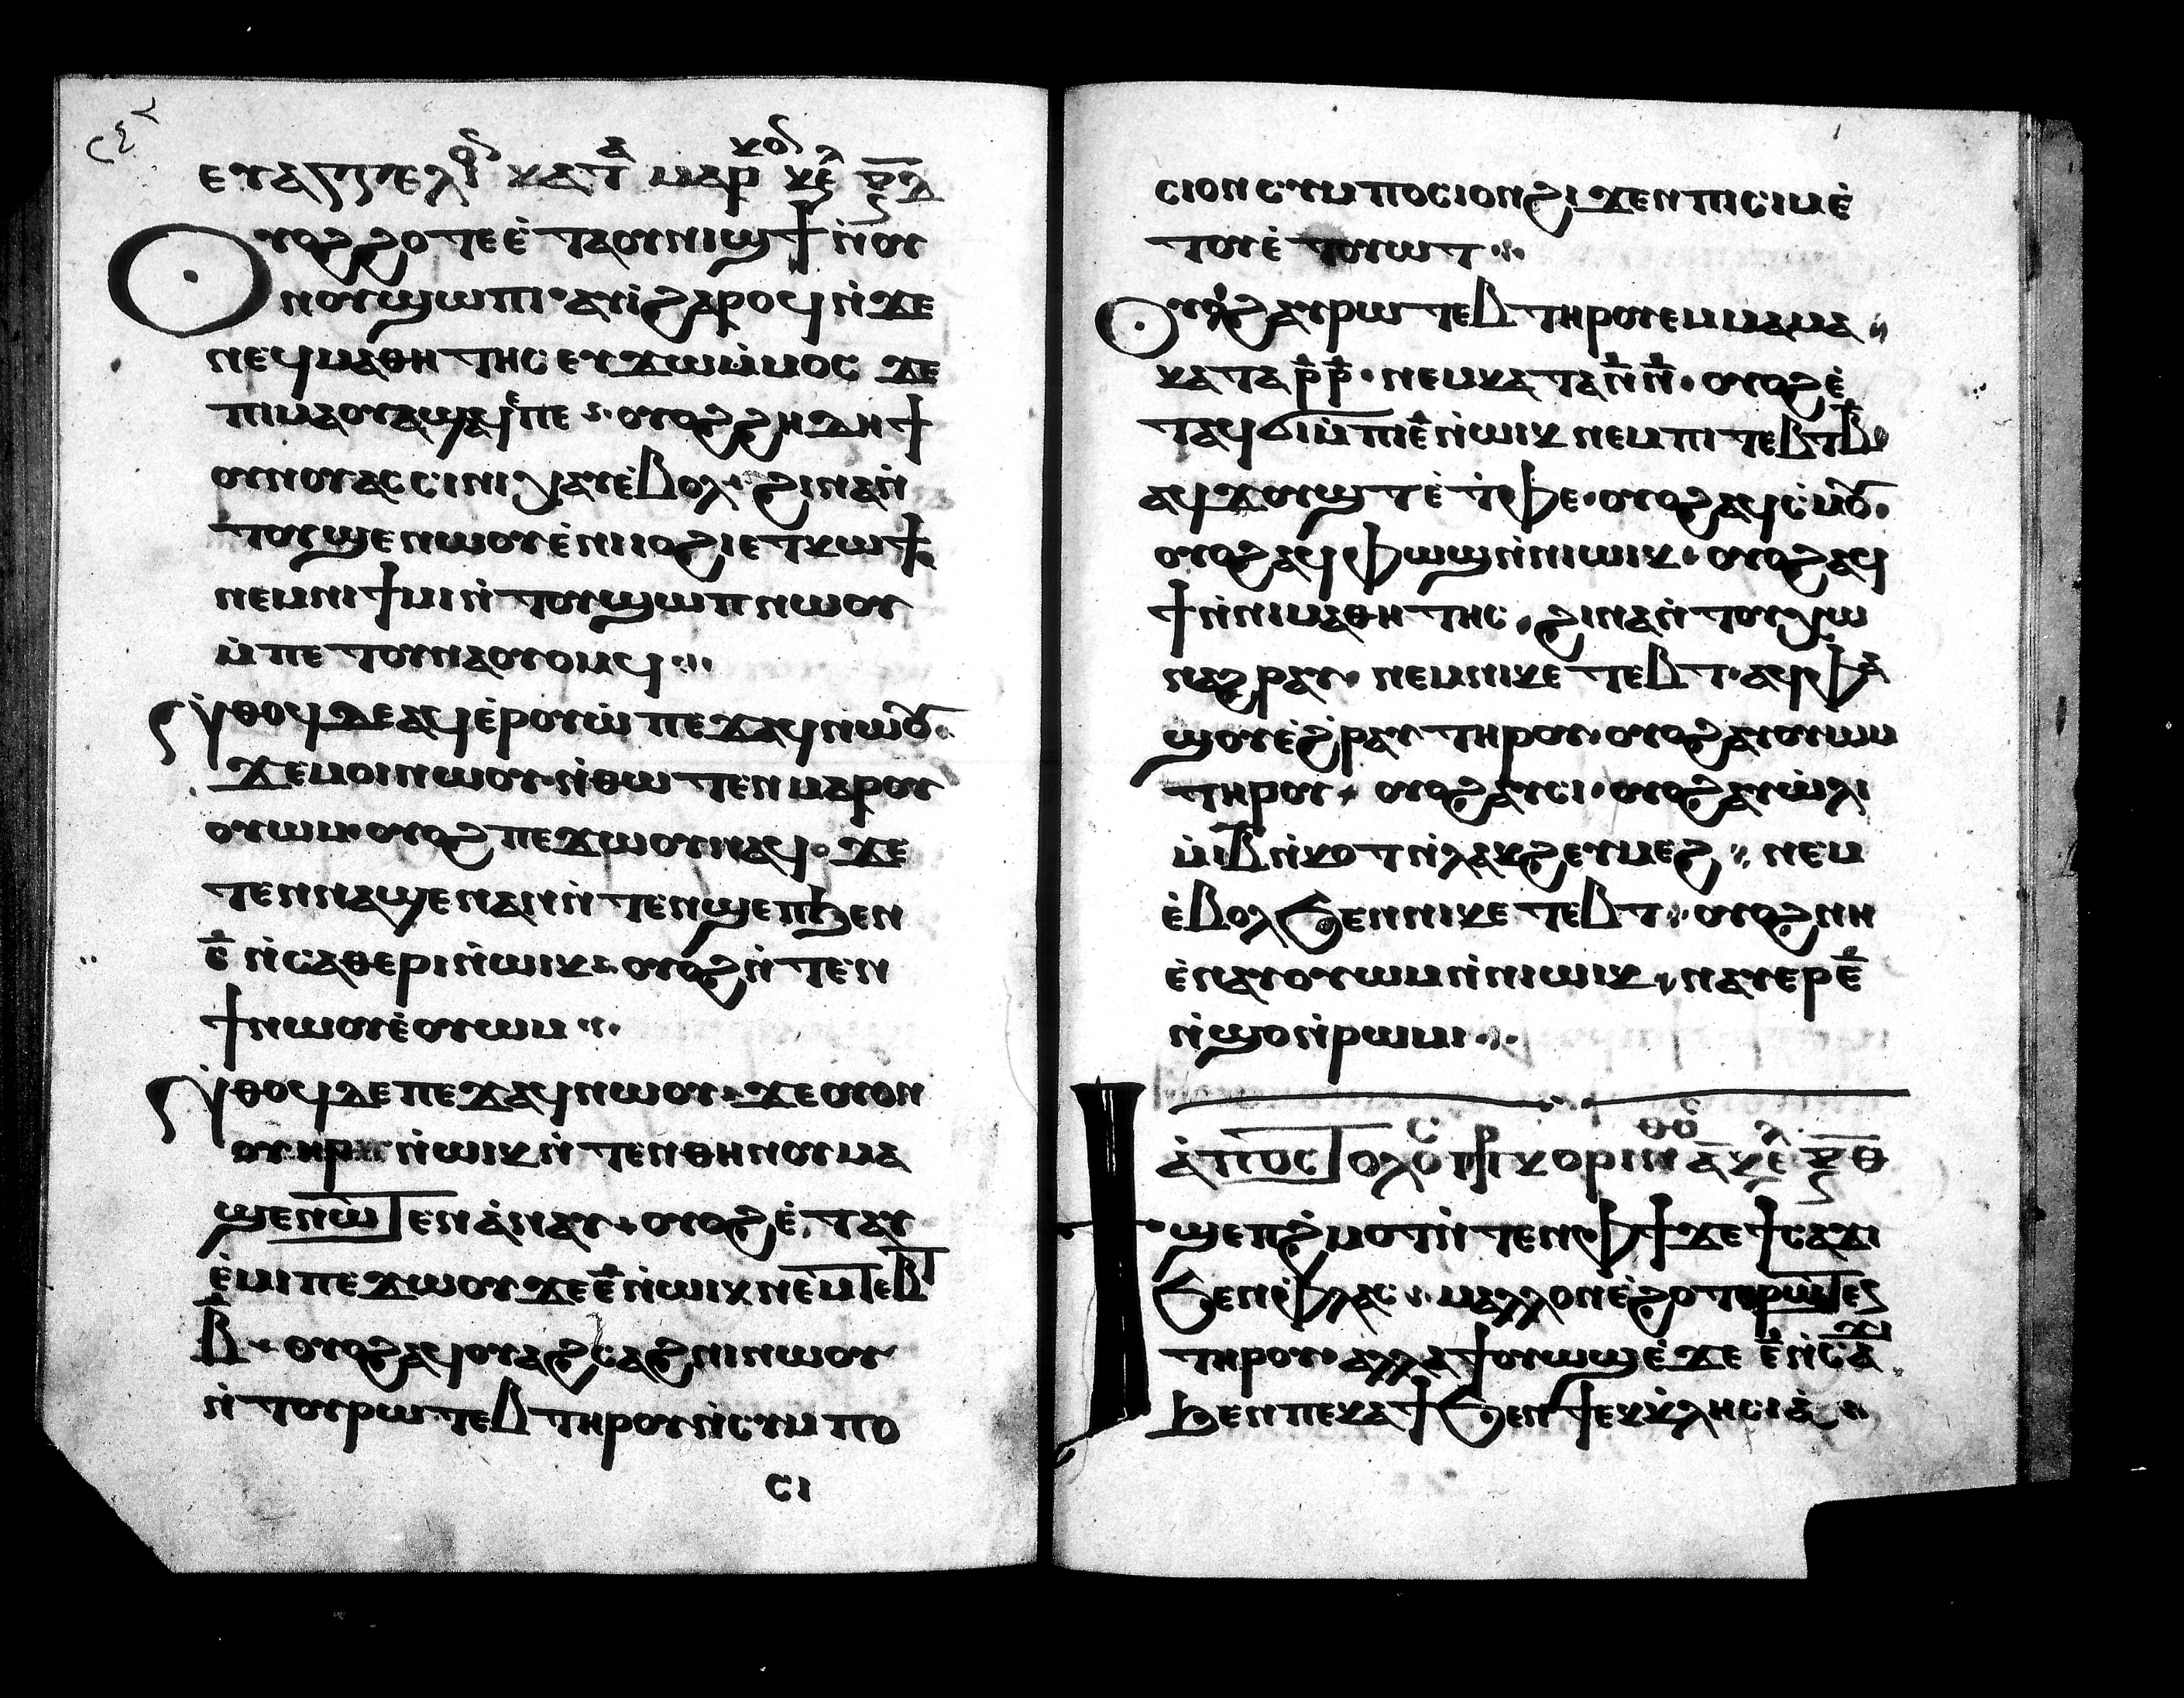 ⲉⲩⲁⲅⲅⲉⲗⲓ ⲕⲁⲧⲁ ⲙⲁⲣ ⲕⲉ
Ⲟⲩⲟϩ ϩⲟⲧⲉ ⲉ̀ⲧⲁⲟⲩⲛⲓϣϯ ⲛ̀ⲟⲩ
ⲛⲟⲩϣⲱⲡⲓ ⲁⲩⲓ̀ ϩⲁⲣⲟϥ ⲛ̀ϫⲉ
ⲛⲉϥⲙⲁⲑⲏⲧⲏⲥ ⲉⲩϫⲱⲙ̀ⲙⲟⲥ ϫⲉ
ⲡⲓⲙⲁⲟⲩⲁϣϥⲉ̀ⲡⲉ ⲟⲩⲟϩ ϩⲏⲇⲏ
ⲟⲩⲛⲟⲩ ⲁⲥⲥⲓⲛⲓ ⲭⲁⲩⲉ̀ⲃⲟⲗ ϩⲓⲛⲁⲛ̀
ⲧⲟⲩϣⲉⲛⲱⲟⲩ ⲉ̀ⲛⲓⲓⲟϩⲓ ⲉⲧⲕⲱϯ
ⲛⲉⲙⲛⲓϯⲙⲓ ⲛ̀ⲧⲟⲩϣⲱⲡ ⲛⲱⲟⲩ
ⲙ̀ⲡⲉⲧⲟⲩⲛⲁⲟⲩⲟⲙϥ
Ⲛ̀ⲑⲟϥ ⲇⲉ ⲁϥⲉ̀ⲣⲟⲩⲱ̀ ⲡⲉϫⲁϥ ⲛⲱⲟⲩ
ϫⲉ ⲙⲟⲓ ⲛⲱⲟⲩ ⲛ̀ⲑⲱⲧⲉⲛ ⲙⲁⲣⲟⲩ
ⲟⲩⲱⲙ ⲟⲩⲟϩ ⲡⲉϫⲱⲟⲩ ⲛⲁϥ ϫⲉ
ⲧⲉⲛⲛⲁϣⲉⲛⲁⲛ ⲛ̀ⲧⲉⲛϣⲉⲡ ϧⲉⲛ
ⲥ̅ ⲛ̀ⲥⲁⲑⲉⲣⲓ ⲛ̀ⲱⲓⲕ ⲟⲩⲟϩ ⲛ̀ⲧⲉⲛ
ϯⲛⲱⲟⲩ ⲉ̀ⲟⲩⲱⲙ
Ⲛ̀ⲑⲟϥ ⲇⲉ ⲡⲉϫⲁϥ ⲛⲱⲟⲩ ϫⲉ ⲟⲩⲟⲛ
ⲟⲩⲏⲣ ⲛ̀ⲱⲓⲕ ⲛ̀ⲧⲉⲛⲑⲏⲛⲟⲩ ⲙⲁ
ϣⲉⲛⲱⲧⲉⲛ ⲁ̀ⲛⲁⲩ ⲟⲩⲟϩ ⲉ̀ⲧⲁⲩ
ⲉ̀ⲙⲓ ⲡⲉϫⲱⲟⲩ ϫⲉ ⲉ̅ ⲛ̀ⲱⲓⲕ ⲛⲉⲙ ⲧⲉⲃⲧ
ⲃ̅ ⲟⲩⲟϩ ⲁϥⲟⲩⲁϩⲥⲁϩⲛⲓ ⲛⲱⲟⲩ
ⲛ̀ⲧⲟⲩⲣⲱⲧⲉⲃ ⲧⲏⲣⲟⲩ ⲛ̀ⲥⲩⲙⲡⲟ
ⲥⲓ
ⲥⲓⲟⲛ ⲥⲩⲙⲡⲟⲥⲓⲟⲛ ϩⲓϫⲉⲛ ⲡⲓⲥⲓⲙ ⲉ̀
ⲧⲟⲩⲉ̀ⲧⲟⲩⲱⲧ
Ⲟⲩⲟϩ ⲁⲩⲣⲱⲧⲉⲃ ⲧⲏⲣⲟⲩ ⲉⲙⲙⲁⲙⲁ
ⲕⲁⲧⲁ ⲣ̅ⲣ̅ ⲛⲉⲙ ⲕⲁⲧⲁ ⲛ̅ⲛ̅ ⲟⲩⲟϩ ⲉ̀
ⲧⲁϥϭⲓ ⲙ̀ⲡⲓⲉ̅ ⲛ̀ⲱⲓⲕ ⲛⲉⲙ ⲡⲓⲧⲉⲃⲧ ⲃ̅
ⲁϥϫⲟⲩϣⲧ ⲉ̀ⲧ̀ⲫⲉ ⲟⲩⲟϩ ⲁϥⲥ̀ⲙⲟⲩ
ⲟⲩⲟϩ ⲁϥⲫⲱϣ ⲛ̀ⲛⲓⲱⲓⲕ ⲟⲩⲟϩ ⲁϥ
ϯ ⲛ̀ⲛⲓⲙⲁⲑⲏⲧⲏⲥ ϩⲓⲛⲁ ⲛ̀ⲧⲟⲩⲭⲱ
ⲛⲁϩⲣⲁⲩ ⲛⲉⲙ ⲛⲓⲕⲉⲧⲉⲃⲧ ⲁϥⲫⲁ
ϣⲟⲩ ⲉ̀ϩ̀ⲣⲁⲩ ⲧⲏⲣⲟⲩ ⲟⲩⲟϩ ⲁⲩⲟⲩⲱⲙ
ⲧⲏⲣⲟⲩ ⲟⲩⲟϩ ⲁⲩⲥⲓ ⲟⲩⲟϩ ⲁⲩⲱ̀ⲗⲓ
ⲙ̀ⲓⲃ̅ ⲛ̀ⲕⲟⲧ ⲛ̀ⲗⲁⲕϩ ⲉⲩⲙⲉϩ ⲛⲉⲙ
ⲉ̀ⲃⲟⲗ ϧⲉⲛ ⲛⲓⲕⲉⲧⲉⲃⲧ ⲟⲩⲟϩ ⲛⲏ
ⲉ̀ⲛⲁⲩⲟⲩⲱⲙ ⲛ̀ⲛⲓⲱⲓⲕ ⲛⲁⲩⲉⲣ ⲉ̅
ⲛ̀ϣⲟ ⲛ̀ⲣⲱⲙⲓ
ⲁ̀ⲡⲟⲥⲧⲟⲗⲟⲥ ⲡⲣ ⲕⲟⲣⲓⲛⲑⲟ ⲁ̅ ⲕⲉ
Ϯϣⲉⲡϩ̀ⲙⲟⲧ ⲛ̀ⲧⲉⲛ ⲫϯ ϫⲉ ϯⲥⲁϫⲓ
ϧⲉⲛ ⲫⲗⲁⲥ ⲙⲁⲗⲗⲟⲛ ⲉ̀ϩⲟⲧⲉⲣⲱⲧⲉⲛ
ⲧⲏⲣⲟⲩ ⲁⲗⲗⲁ ϯⲟⲩⲱϣ ⲉ̀ϫⲉ ⲉ̅ ⲛ̀ⲥⲁϫⲓ
ϧⲉⲛ ⲡⲉⲕⲁϯ ϧⲉⲛ ϯⲉⲕⲕ̀ⲗⲏⲥⲓⲁ̀